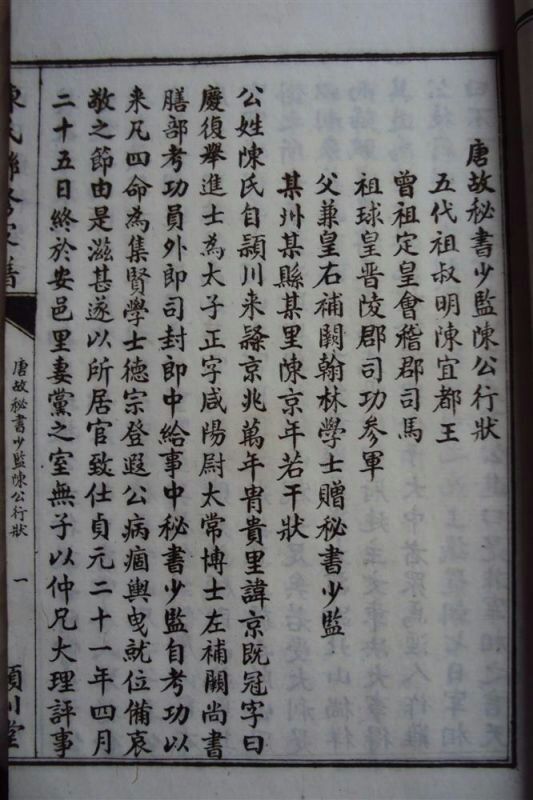 唐故秘書少監陳公行狀
五代祖叔明陳宜都王
曾祖定皇會稽郡司馬
祖球皇晋陵郡司功參軍
父兼皇右補闕翰林學士贈秘書少監
某州某縣某里陳京年若干狀
公姓陳氏自頴川来𨽻京兆萬年胄貴里諱京既冠字曰
慶復舉進士為太子正字咸陽尉太常博士左補闕尚書
膳部考功員外郎司封郎中給事中秘書少監自考功以
来凡四命為集賢學士德宗登遐公病痼輿曳就位備哀
敬之節由是滋甚遂以所居官致仕貞元二十一年四月
二十五日終於安邑里妻黨之室無子以仲兄大理評事
唐故秘書少監陳公行狀
一